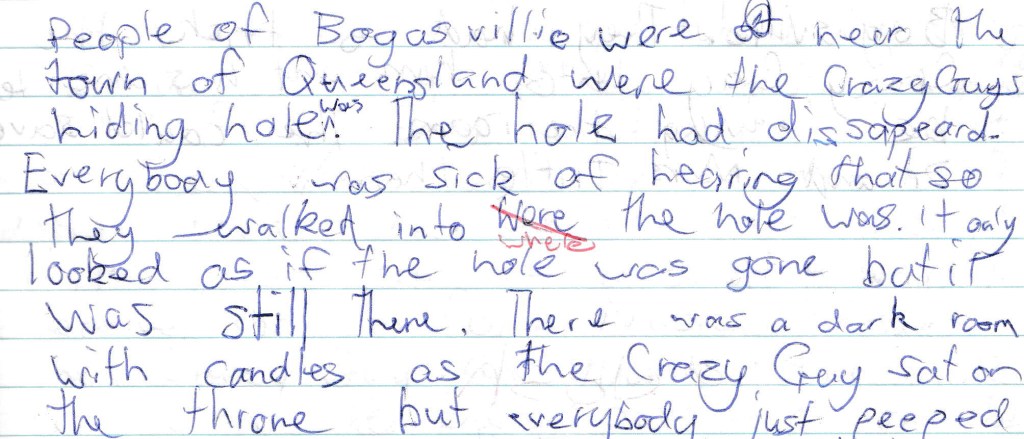 People of Bogasvillie were near the
town of Queensland were the CrazyGuys
hiding hole was. The hole had dissapeard.
Everybody was sick of hearing that so
they walked into Were where the hole was. it only
looked as if the hole was gone but it
was still there. There was a dark room
with candles as the Crazy Guy sat on
the throne but everybody just peeped